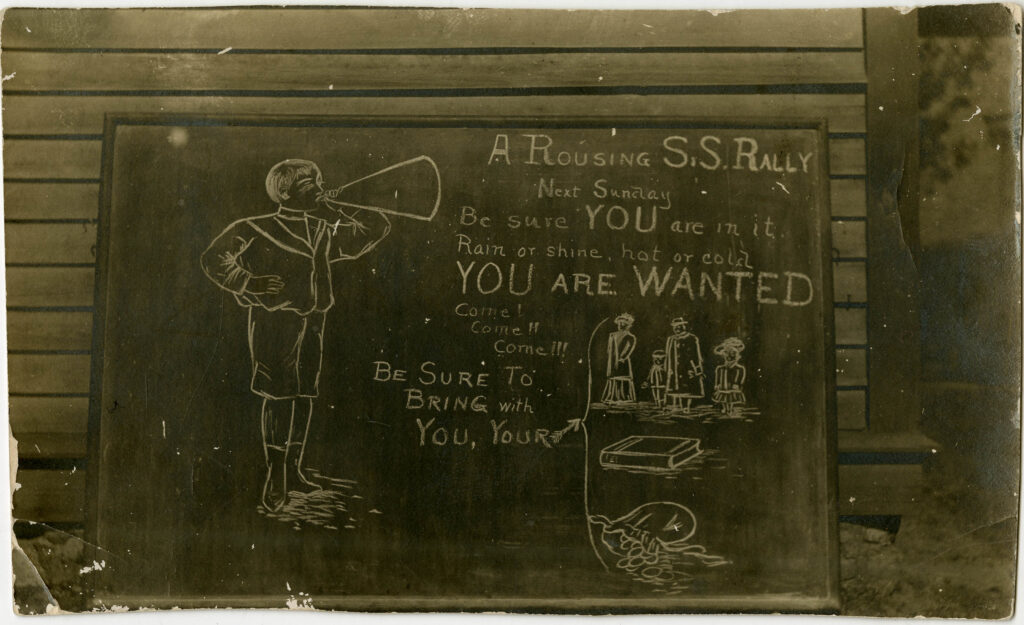 A ROUSING S.S. RALLY
Next Sunday
Be sure YOU are in it.
Rain or shine, hot or cold
YOU ARE WANTED
Come!
Come!!
Come!!!
BE SURE TO
BRING with
YOU, YOUR